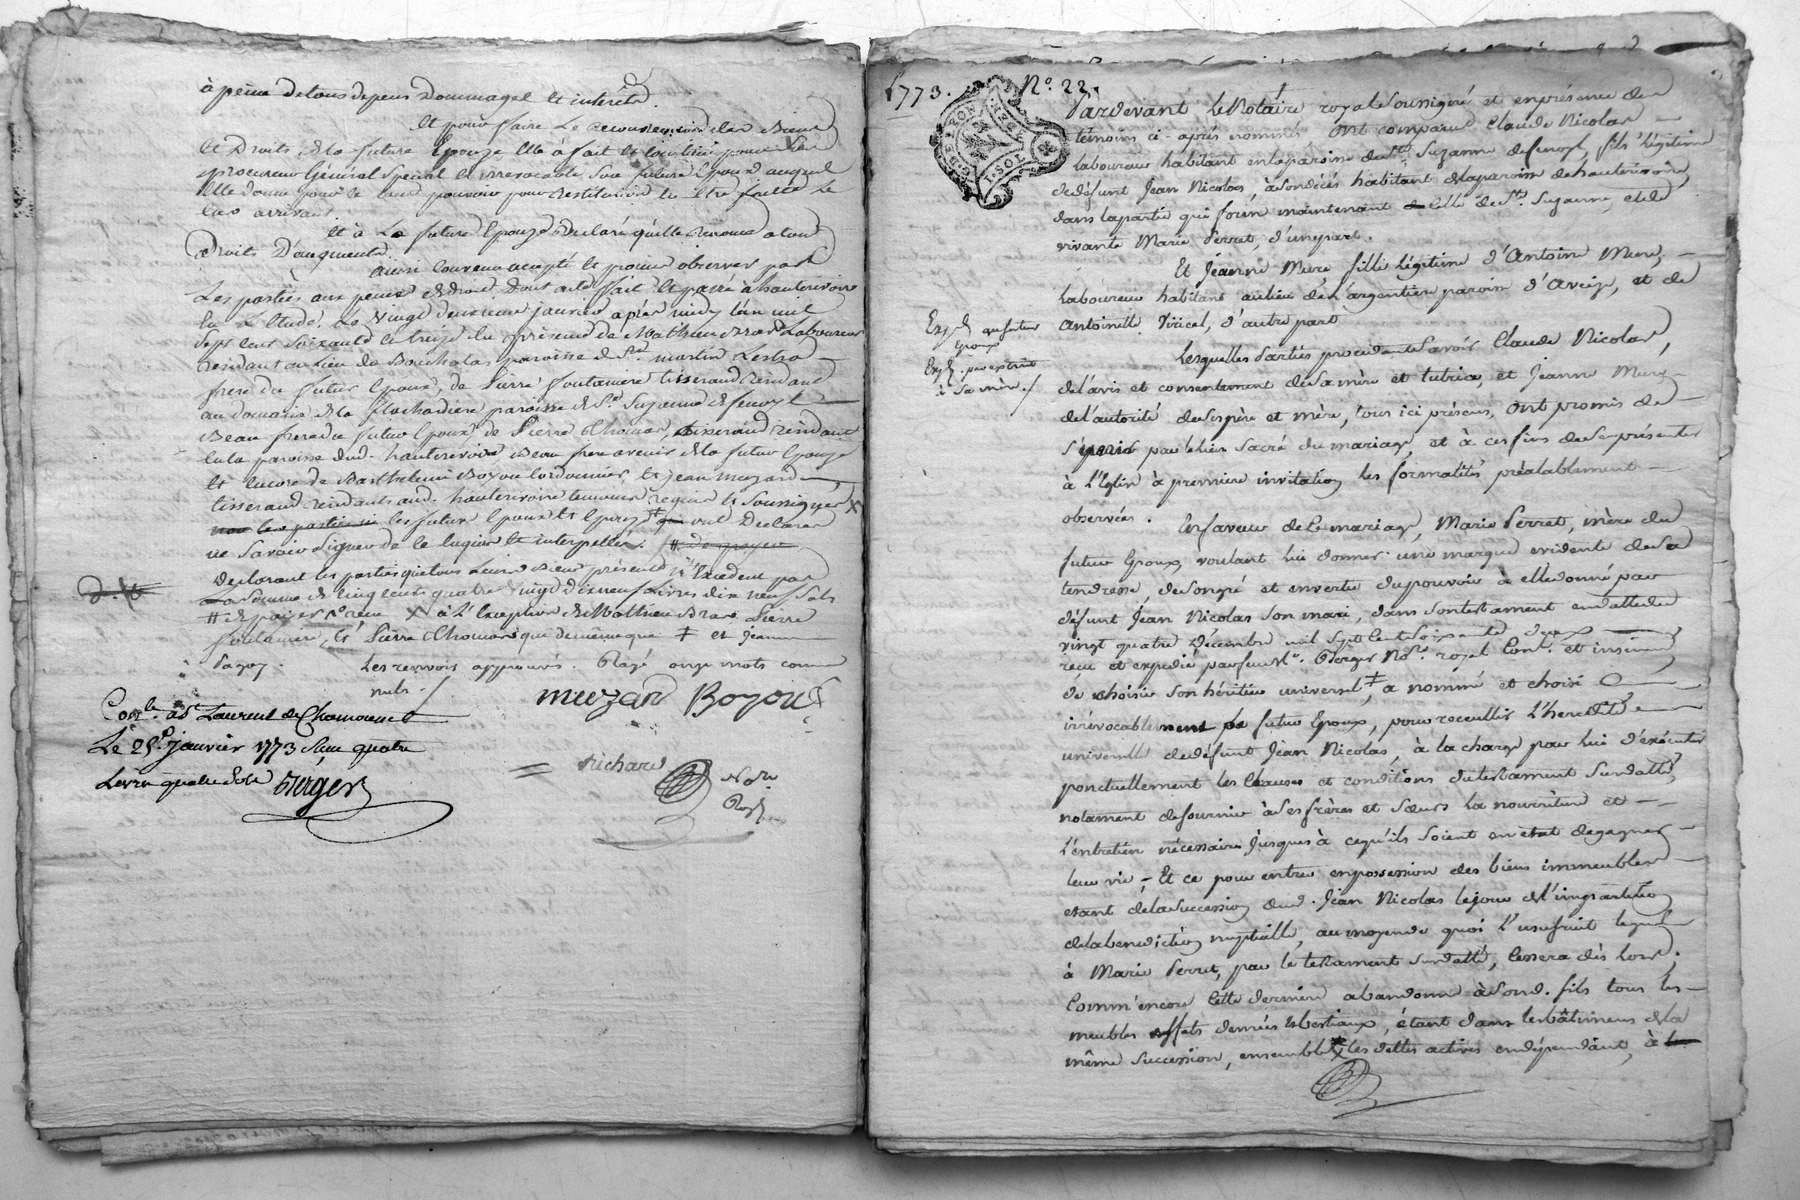 à peine de tous depens dommages et interêts.
et pour faire le recouvrement des Biens
et Droits de la future Epouze elle à fait et constitué pour son
procureur Général special et irrevocable son futur Epoux auquel
elle donne pouvoir pour restitution en Etre faitte le
cas arrivant
et à la future Epouze declaré qu'elle renonce a tous
Droits D'augments.
ainsi convenu acepté et promis observer par
Les parties aux peines de droit, Dont acte fait et passé à hauterivoire
en L'Etude. Le vingt deuxieme janvier après midy L'an mil
sept cent soixante et treize en presence de Mathieu Brard Laboureur
residant au lieu du Bouchala paroisse de St. martin Lestra
frere du futur Epoux, de Pierre fontaniere tisserand residant
au domaine de la flachardiere paroisse de Ste. Suzanne de fenoyl
Beau frere du futur Epoux, de Pierre Thomas, tisserand residant
en la paroisse dud. hauterivoire, Beau frere avenir de la future Epouze
et encore de Barthelemi Boyou cordonnier, et jean mozard
tisserand residants aud. hauterivoire temoins requis et soussignés X
les futurs Epoux et Epouze ‡ ont Declaré
ne savoir signer de ce enquis et interpellés. # de payer
Declarant les parties que tous leurs Biens présents n'Excedent pas
La somme de cinq cents quatre vingt dix neuf Livres dix neuf sols
# de payer X à L'Exception de Mathieu Brard Pierre
fontaniere, et Pierre Thomas que de même que ‡ et jeanne
Pagoy. Les renvois approuvés. Rayé onze mots comme
nuls.
muzard Boyou
Conlé. à St. Laurent de Chamousset
Le 25 janvier 1773 Reçu quatre
Livres quatre sols Berger
Richard
Nore.
Royl
1773.
No. 22.
Pardevant le Notaire royal soussigné et en présence des
témoins ci-après nommés ont comparu Claude Nicolas
laboureur habitant en la paroisse de Ste. Suzanne de fenoyl, fils légitime
de défunt Jean Nicolas, à son décès habitant de la paroisse de hauterivoire,
dans la partie qui forme maintenant celle de Ste. Suzanne, et de
vivante Marie Perret d'une part.
Et Jeanne Mure fille légitime d'Antoine Mure,
laboureur habitant au lieu de L'argentiere paroisse d'Aveize, et de
Antoinette Viricel, d'autre part
Exp.d au futur
Epoux
Exp.d. par extrait
à sa mère./
Lesquelles Parties procedantes savoir Claude Nicolas,
de l'avis et consentement de sa mère et tutrice, et Jeanne Mure
de l'autorité de ses père et mère, tous ici présens, ont promis de
s'épouser par le lien sacré du mariage, et à ces fins de se présenter
à l'Eglise à première invitation, les formalités préalablement
observées.
En faveur de ce mariage, Marie Perret, mère du
futur Epoux, voulant lui donner une marque evidente de sa
tendresse, de son gré et en vertu du pouvoir à elle donné par
défunt Jean Nicolas son mari, dans son testament en datte du
vingt quatre Décembre mil sept cents soixante deux
reçu et expedié par feu Me. Berger Nore. royal Conl. et insinué
de choisir son héritier universel, ‡ a nommé et choisi
irrévocablement le futur Epoux, pour recueillir l'heredité
universelle de défunt Jean Nicolas, à la charge par lui d'exécuter
ponctuellement les clauses et conditions du testament susdatté,
notament de fournir à ses frères et sœurs la nourriture et
l'entretien nécessaires jusques à ce qu'ils soient en état de gagner
leur vie, Et ce pour entrer en possession des biens immeubles
etant de la succession dud. Jean Nicolas le jour de l'impartition
de la benediction nuptialle, au moyen de quoi l'usufruit legué
à Marie Perret, par le testament susdatté, cessera dès lors,
Comm'encore cette derniere abandonne à son d. fils tous les
meubles effets denrées et bestiaux, étant dans les bâtimens de la
même succession, ensemble les dettes actives en dépendant, à